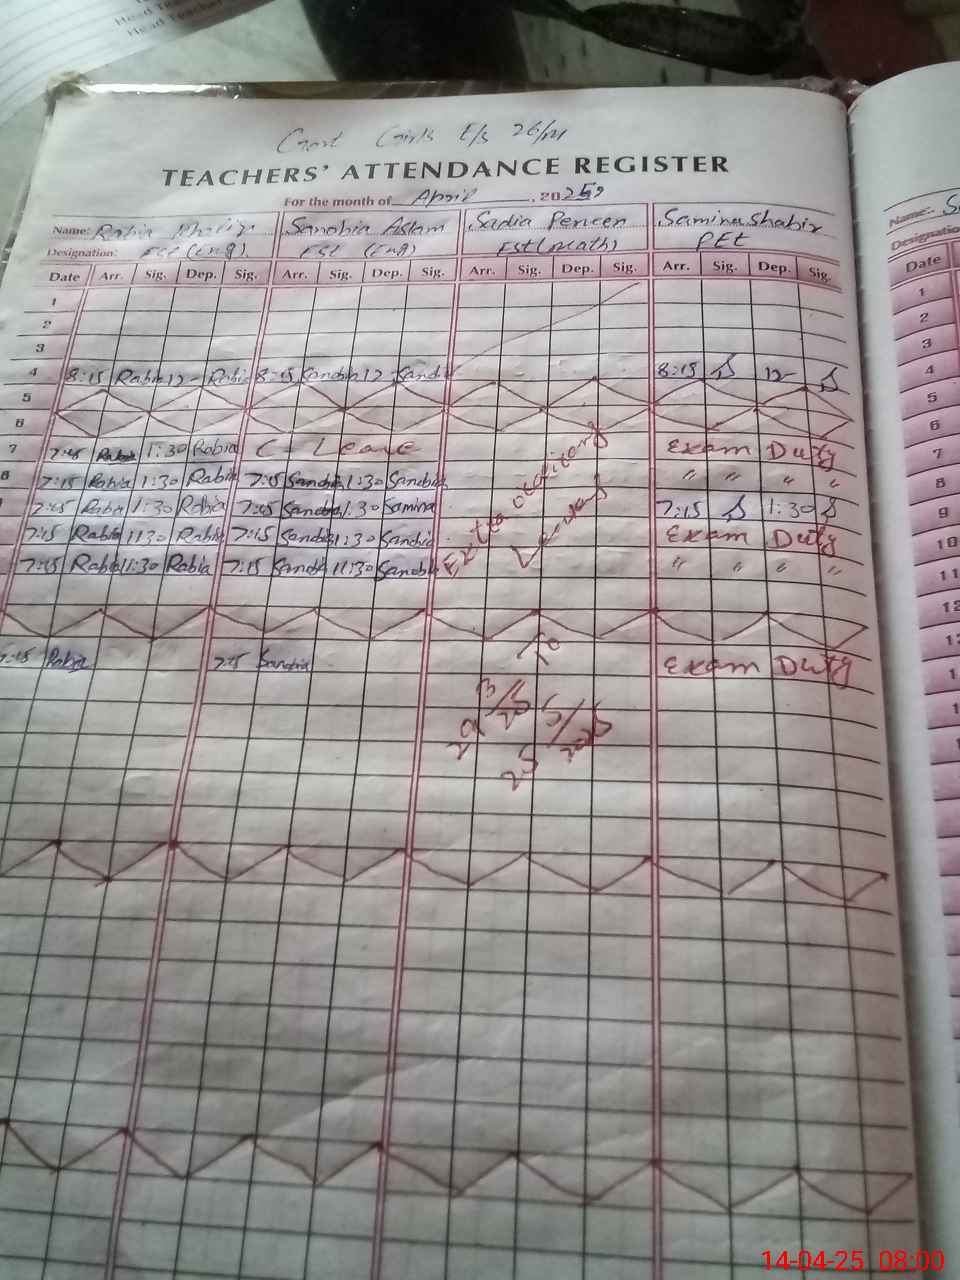 Head Teacher
Govt Girls E/S 26/M
TEACHERS' ATTENDANCE REGISTER
For the month of April , 2025
Name: Rabia Sanobia Aslam Sadia Perveen Samina Shabir
Designation: EST (Eng). EST (Eng) EST (Math) PET
Date Arr. Sig. Dep. Sig. Arr. Sig. Dep. Sig. Arr. Sig. Dep. Sig. Arr. Sig. Dep. Sig.
1
2
3
4 8:15 Rabia 12 - Rabia 8:15 Sanobia 12 - Sanobia 8:15 12-
5
6
7 7:45 Rabia 1:30 Rabia C - Leave Exam Duty
8 7:15 Rabia 1:30 Rabia 7:15 Sanobia 1:30 Sanobia " " " "
7:45 Rabia 1:30 Rabia 7:45 Sanobia 1:30 Samina 7:15 1:30
7:15 Rabia 1:30 Rabia 7:15 Sanobia 1:30 Sanobia Exam Duty
7:45 Rabia 1:30 Rabia 7:15 Sanobia 1:30 Sanobia " " " "
7:45 Rabia 7:45 Sanobia Exam Duty
To
29 3/25
25 5/2025
Name:- S
Designation
Date
1
2
3
4
5
6
7
8
9
10
11
12
14-04-25 08:00